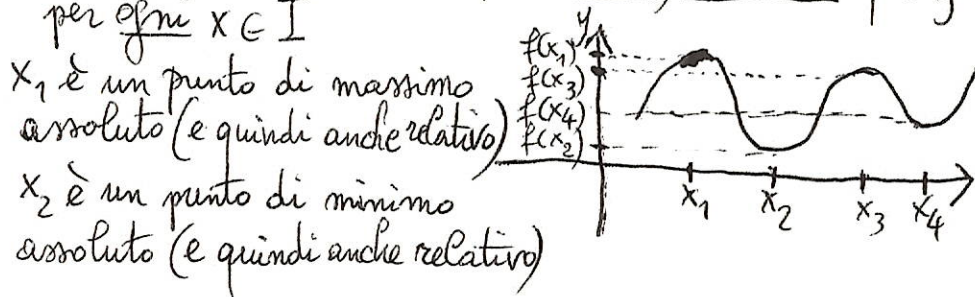 per ogni x ∈ I
x₁ è un punto di massimo
assoluto (e quindi anche relativo)
x₂ è un punto di minimo
assoluto (e quindi anche relativo)
y
f(x₁)
f(x₃)
f(x₄)
f(x₂)
x₁ x₂ x₃ x₄